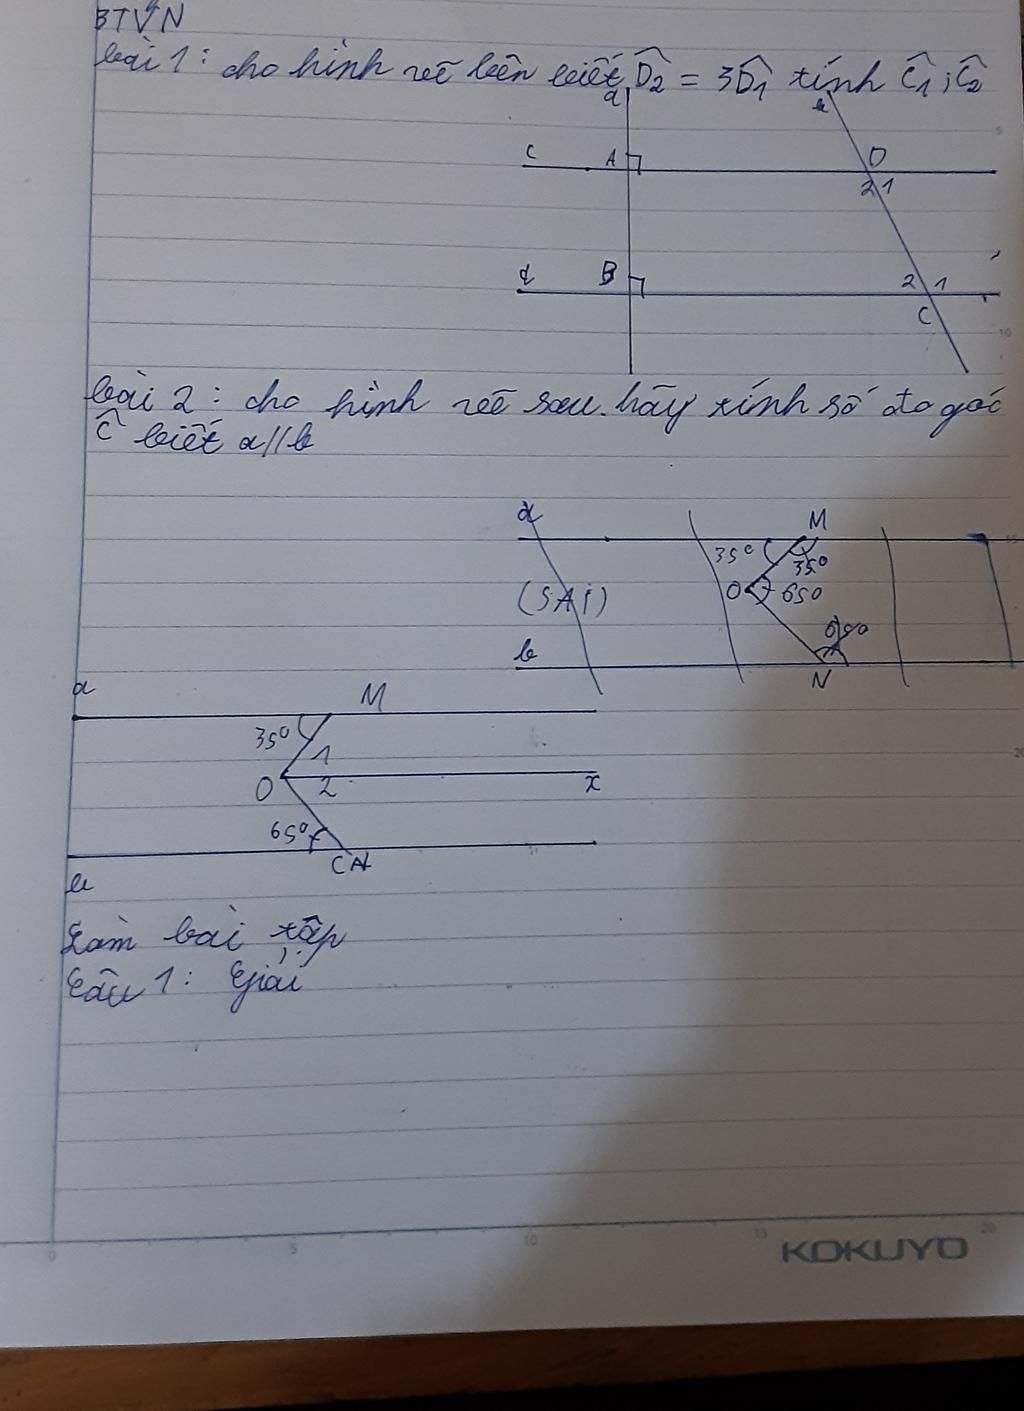 BTVN
bài 1: cho hình vẽ bên biết D̂2 = 3D̂1 tính Ĉ1; Ĉ2
a
b
c A D
2 1
d B 2 1
C
bài 2: cho hình vẽ sau. hãy tính số đo góc
Ĉ biết a//b
a M
35° 35°
(SAi) O 650
b 650
N
a M
35° 1
O 2 x
65°
C N
b
Làm bài tập
Câu 1: Giải
KOKUYO